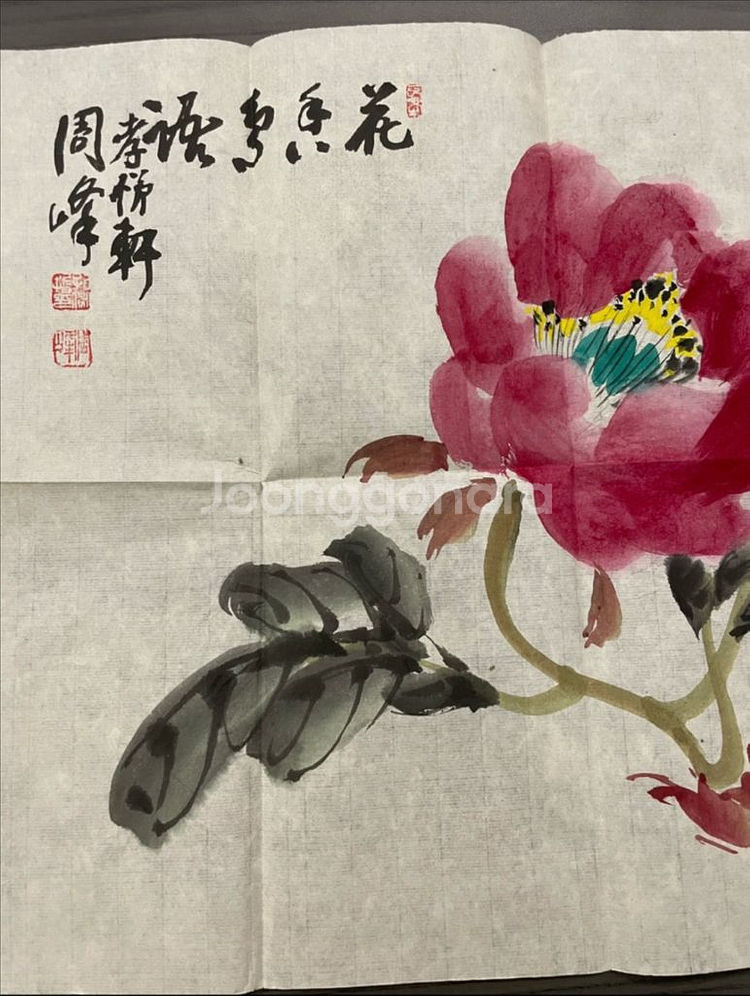 花香鳥語
孝悌軒
周峰
Joonggonara